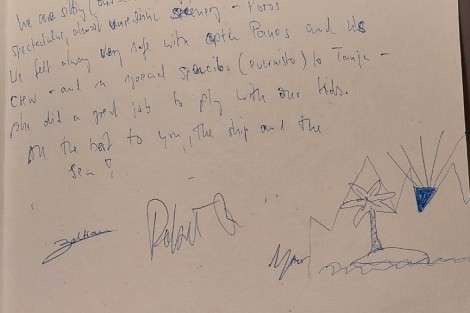 We are sitting
spectacular, almost scenery - Poros
We felt always very safe with Captn Panos and his
crew - and a special spasibo (euxaristo) to Tanja -
she did a great job to play with our kids.
All the best to you, the ship and the
sea!
Zoltan
Robert